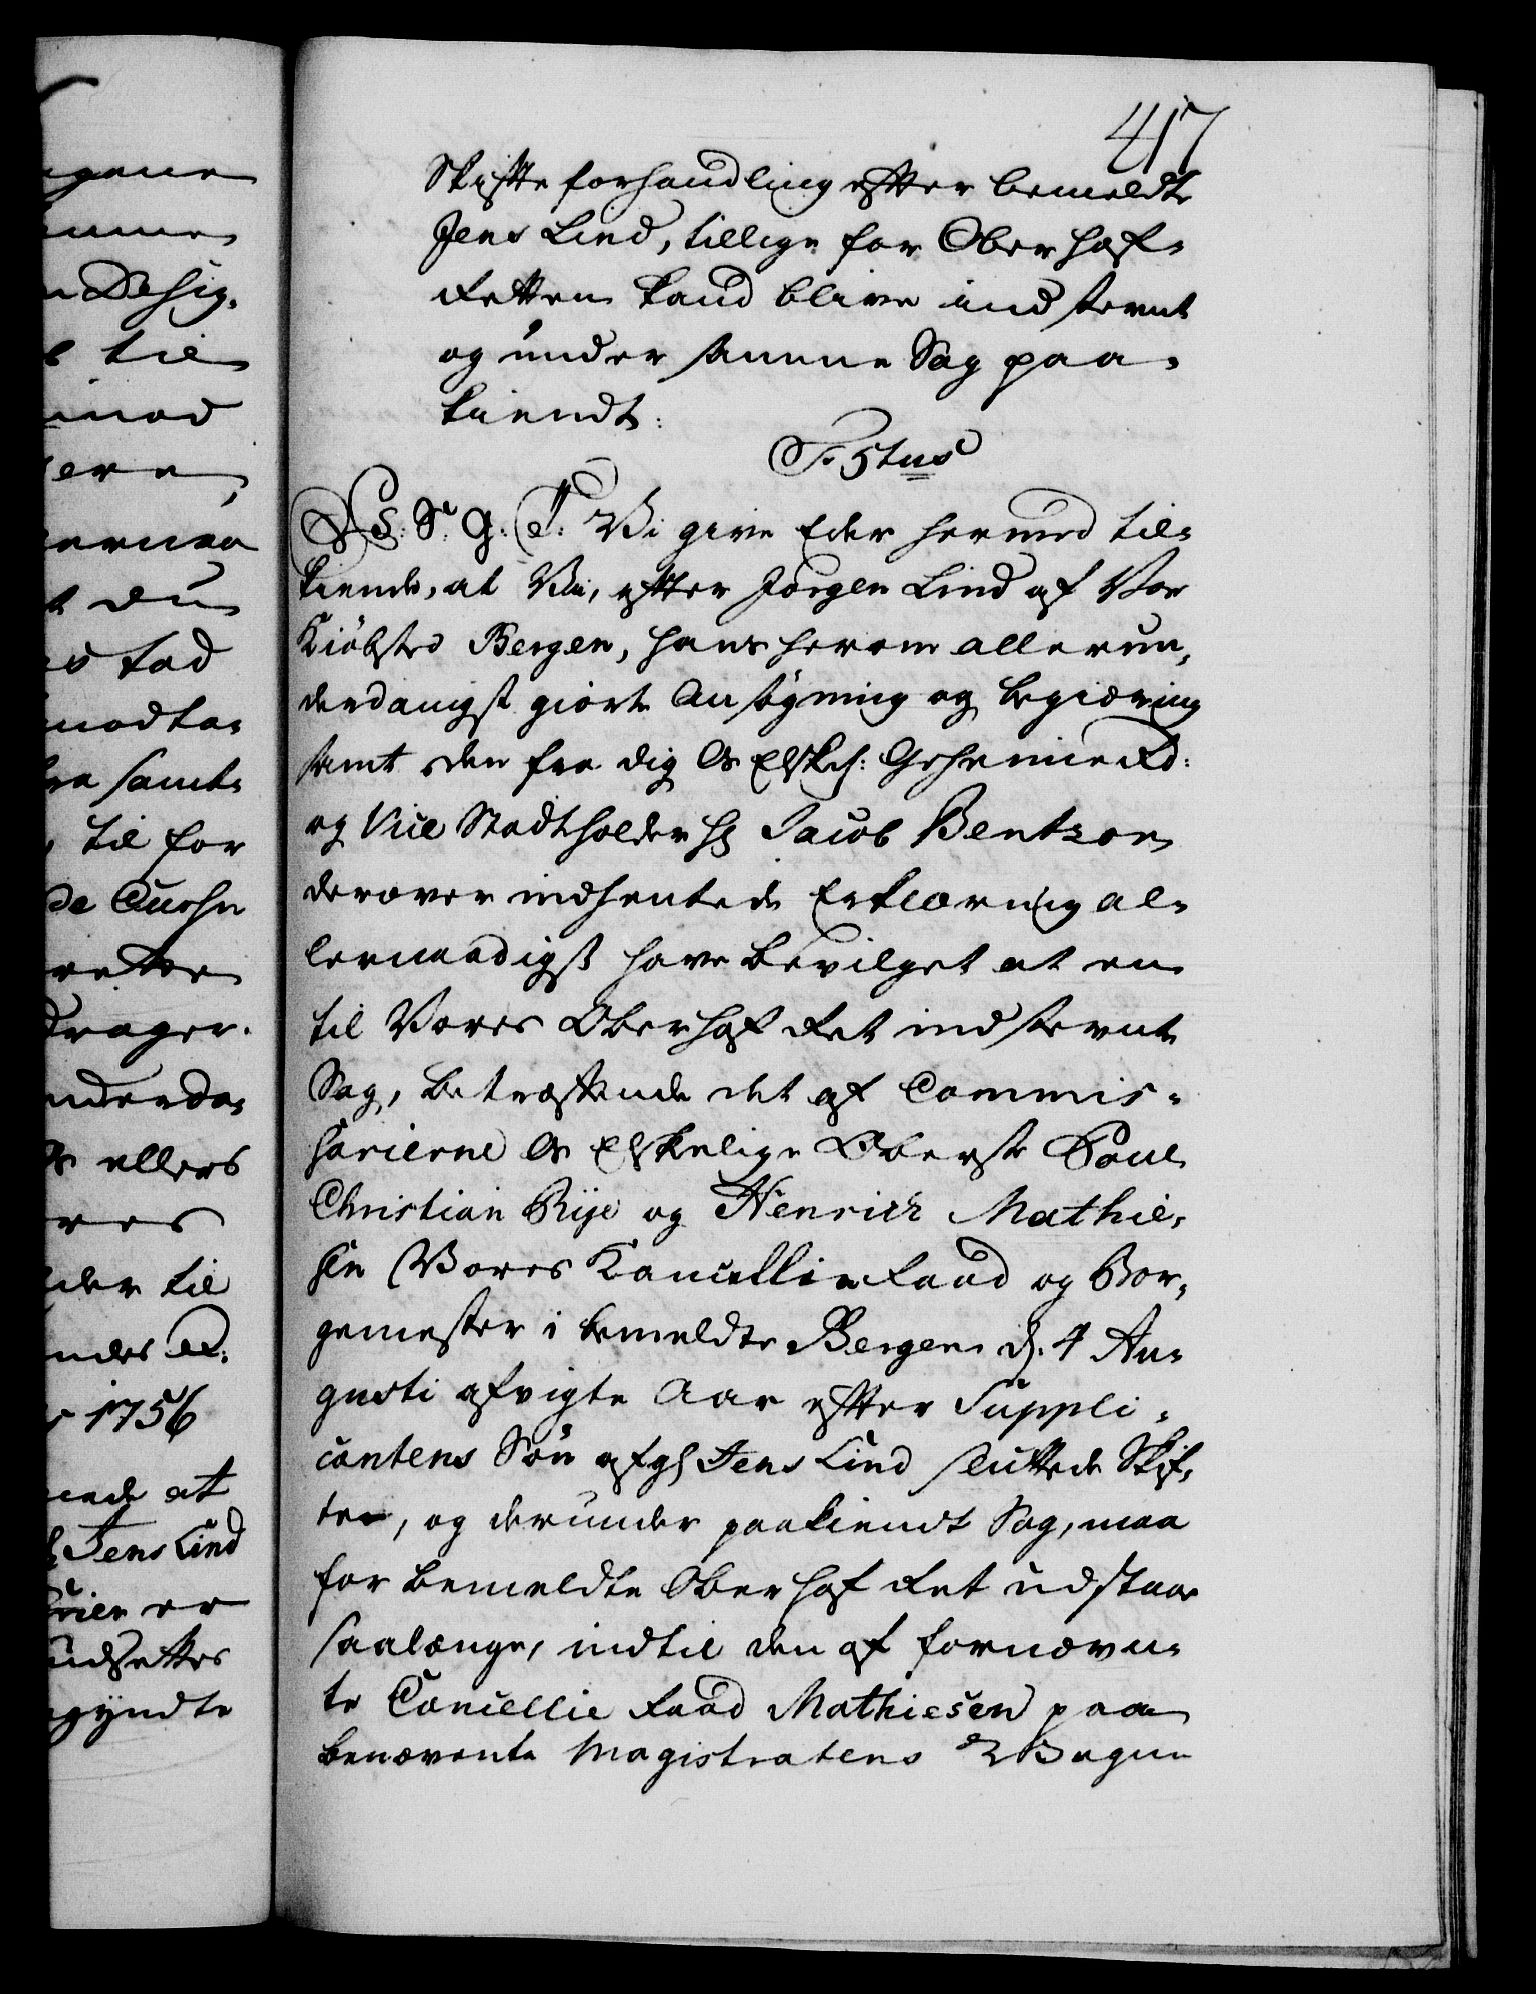 417
Skifte forhandling efter bemeldte
Jens Lind, tillige for Oberhof-
Retten kand blive ind stevnt
og under samme Sag paa-
kiendt:
F. 5tus
S: G: T: Vi give Eder hermed til-
kiende, at Vi, efter Jørgen Lind af Vor
Kiøbsted Bergen, hans herom allerun-
derdanigst giorte Ansøgning og begiæring
samt den fra dig Os Elskel: Geheime Rd:
og Vice Stadtholder Hr Jacob Bentzon
derover indhentede Erklæring al-
lernaadigst have bevilget at en
til Vores Oberhof Ret indstevnte
Sag, betræffende det af Commis-
sarierne Os Elskelige Oberste Poul
Christian Rije og Henrich Mathie-
sen Vores Kancellieraad og Bor-
gemester i bemeldte Bergen d. 4 Au-
gusti afvigte Aar efter Suppli-
cantens Søn afg: Jens Lind sluttede Skif-
te, og derunder paakiendt Sag, maa
for bemeldte Oberhof Ret udstaae
saalænge, indtil den af fornævn-
te Cancellie Raad Mathiesen paa
benævnte Magistratens Vegne
igene
til
imod
du
tod
modta-
samt
til for
rette
drager.
underda-
ellers
der til
1756
at
Jens Lind
er
udsættes
gyndte